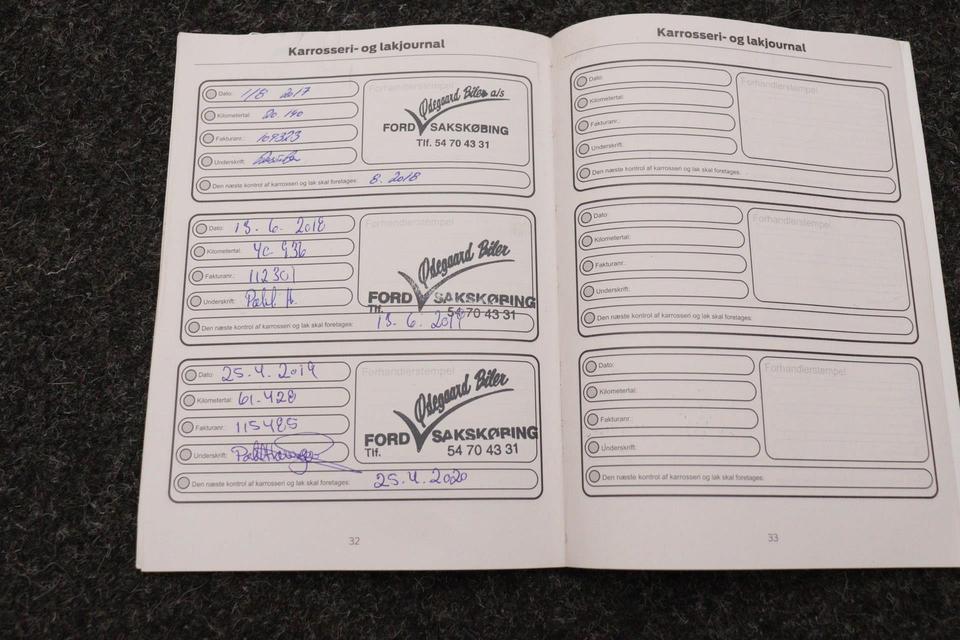 Karrosseri- og lakjournal
Dato: 1/8 2017
Kilometertal: 20.190
Fakturanr.: 109323
Underskrift:
Forhandlerstempel
Ødegaard Biler a/s
FORD SAKSKØBING
Tlf. 54 70 43 31
Den næste kontrol af karrosseri og lak skal foretages: 8. 2018
Dato: 13. 6. 2018
Kilometertal: 40 936
Fakturanr.: 112301
Underskrift:
Forhandlerstempel
Ødegaard Biler
FORD SAKSKØBING
Tlf. 54 70 43 31
Den næste kontrol af karrosseri og lak skal foretages: 13. 6. 2019
Dato: 25.4.2019
Kilometertal: 61.428
Fakturanr.: 115485
Underskrift:
Forhandlerstempel
Ødegaard Biler
FORD SAKSKØBING
Tlf. 54 70 43 31
Den næste kontrol af karrosseri og lak skal foretages: 25.4.2020
32
Karrosseri- og lakjournal
Dato:
Kilometertal:
Fakturanr.:
Underskrift:
Forhandlerstempel
Den næste kontrol af karrosseri og lak skal foretages:
Dato:
Kilometertal:
Fakturanr.:
Underskrift:
Forhandlerstempel
Den næste kontrol af karrosseri og lak skal foretages:
Dato:
Kilometertal:
Fakturanr.:
Underskrift:
Forhandlerstempel
Den næste kontrol af karrosseri og lak skal foretages:
33